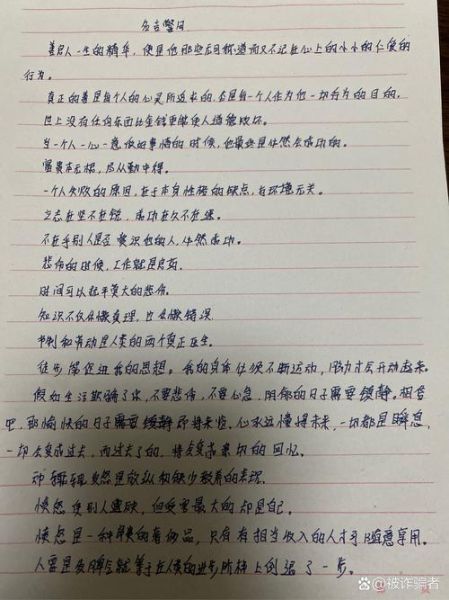 名言警句
善良人一生的精华，便是他那些启明称道而又不记在心上的小小的仁爱的
行为。
真正的善是每个人的心灵所追求的，是每一个人作为他一切行为的目的。
世上没有任何东西比金钱更能使人道德败坏。
当一个人一心一意做的事情的时候，他最终是必然会成功的。
富贵本无根，尽从勤中得。
一个人失败的原因，在于本身性格的缺点，与环境无关。
之志在坚不在锐，成功在久不在速。
不在乎别人是否赏识你的人，必然成功。
悲伤的时候，工作就是良药。
时间可以抚平莫大的悲伤。
知识不仅在懂真理，也在懂错误
节制和劳动是人类的两个真正医生。
徒步能促进我的思想。我的身体必须不断运动，脑力才会开动起来。
假如生活欺骗了你，不要悲伤，不要心急，阴郁的日子需要镇静。相信
吧，那愉快的日子需要镇静即将来临。心永远憧憬未来，一切都是瞬息，
一切会变成过去，而过去了的，将会变成亲切的回忆。
动辄发怒是放纵和缺少教养的表现。
愤怒使别人遭殃，但受害最大的却是自己。
愤怒是一种昂贵的奢侈品，只有有相当收入的人才可随意享用。
人要是发脾气就等于在人类的进步阶梯上倒退了一步。
@被诈骗者